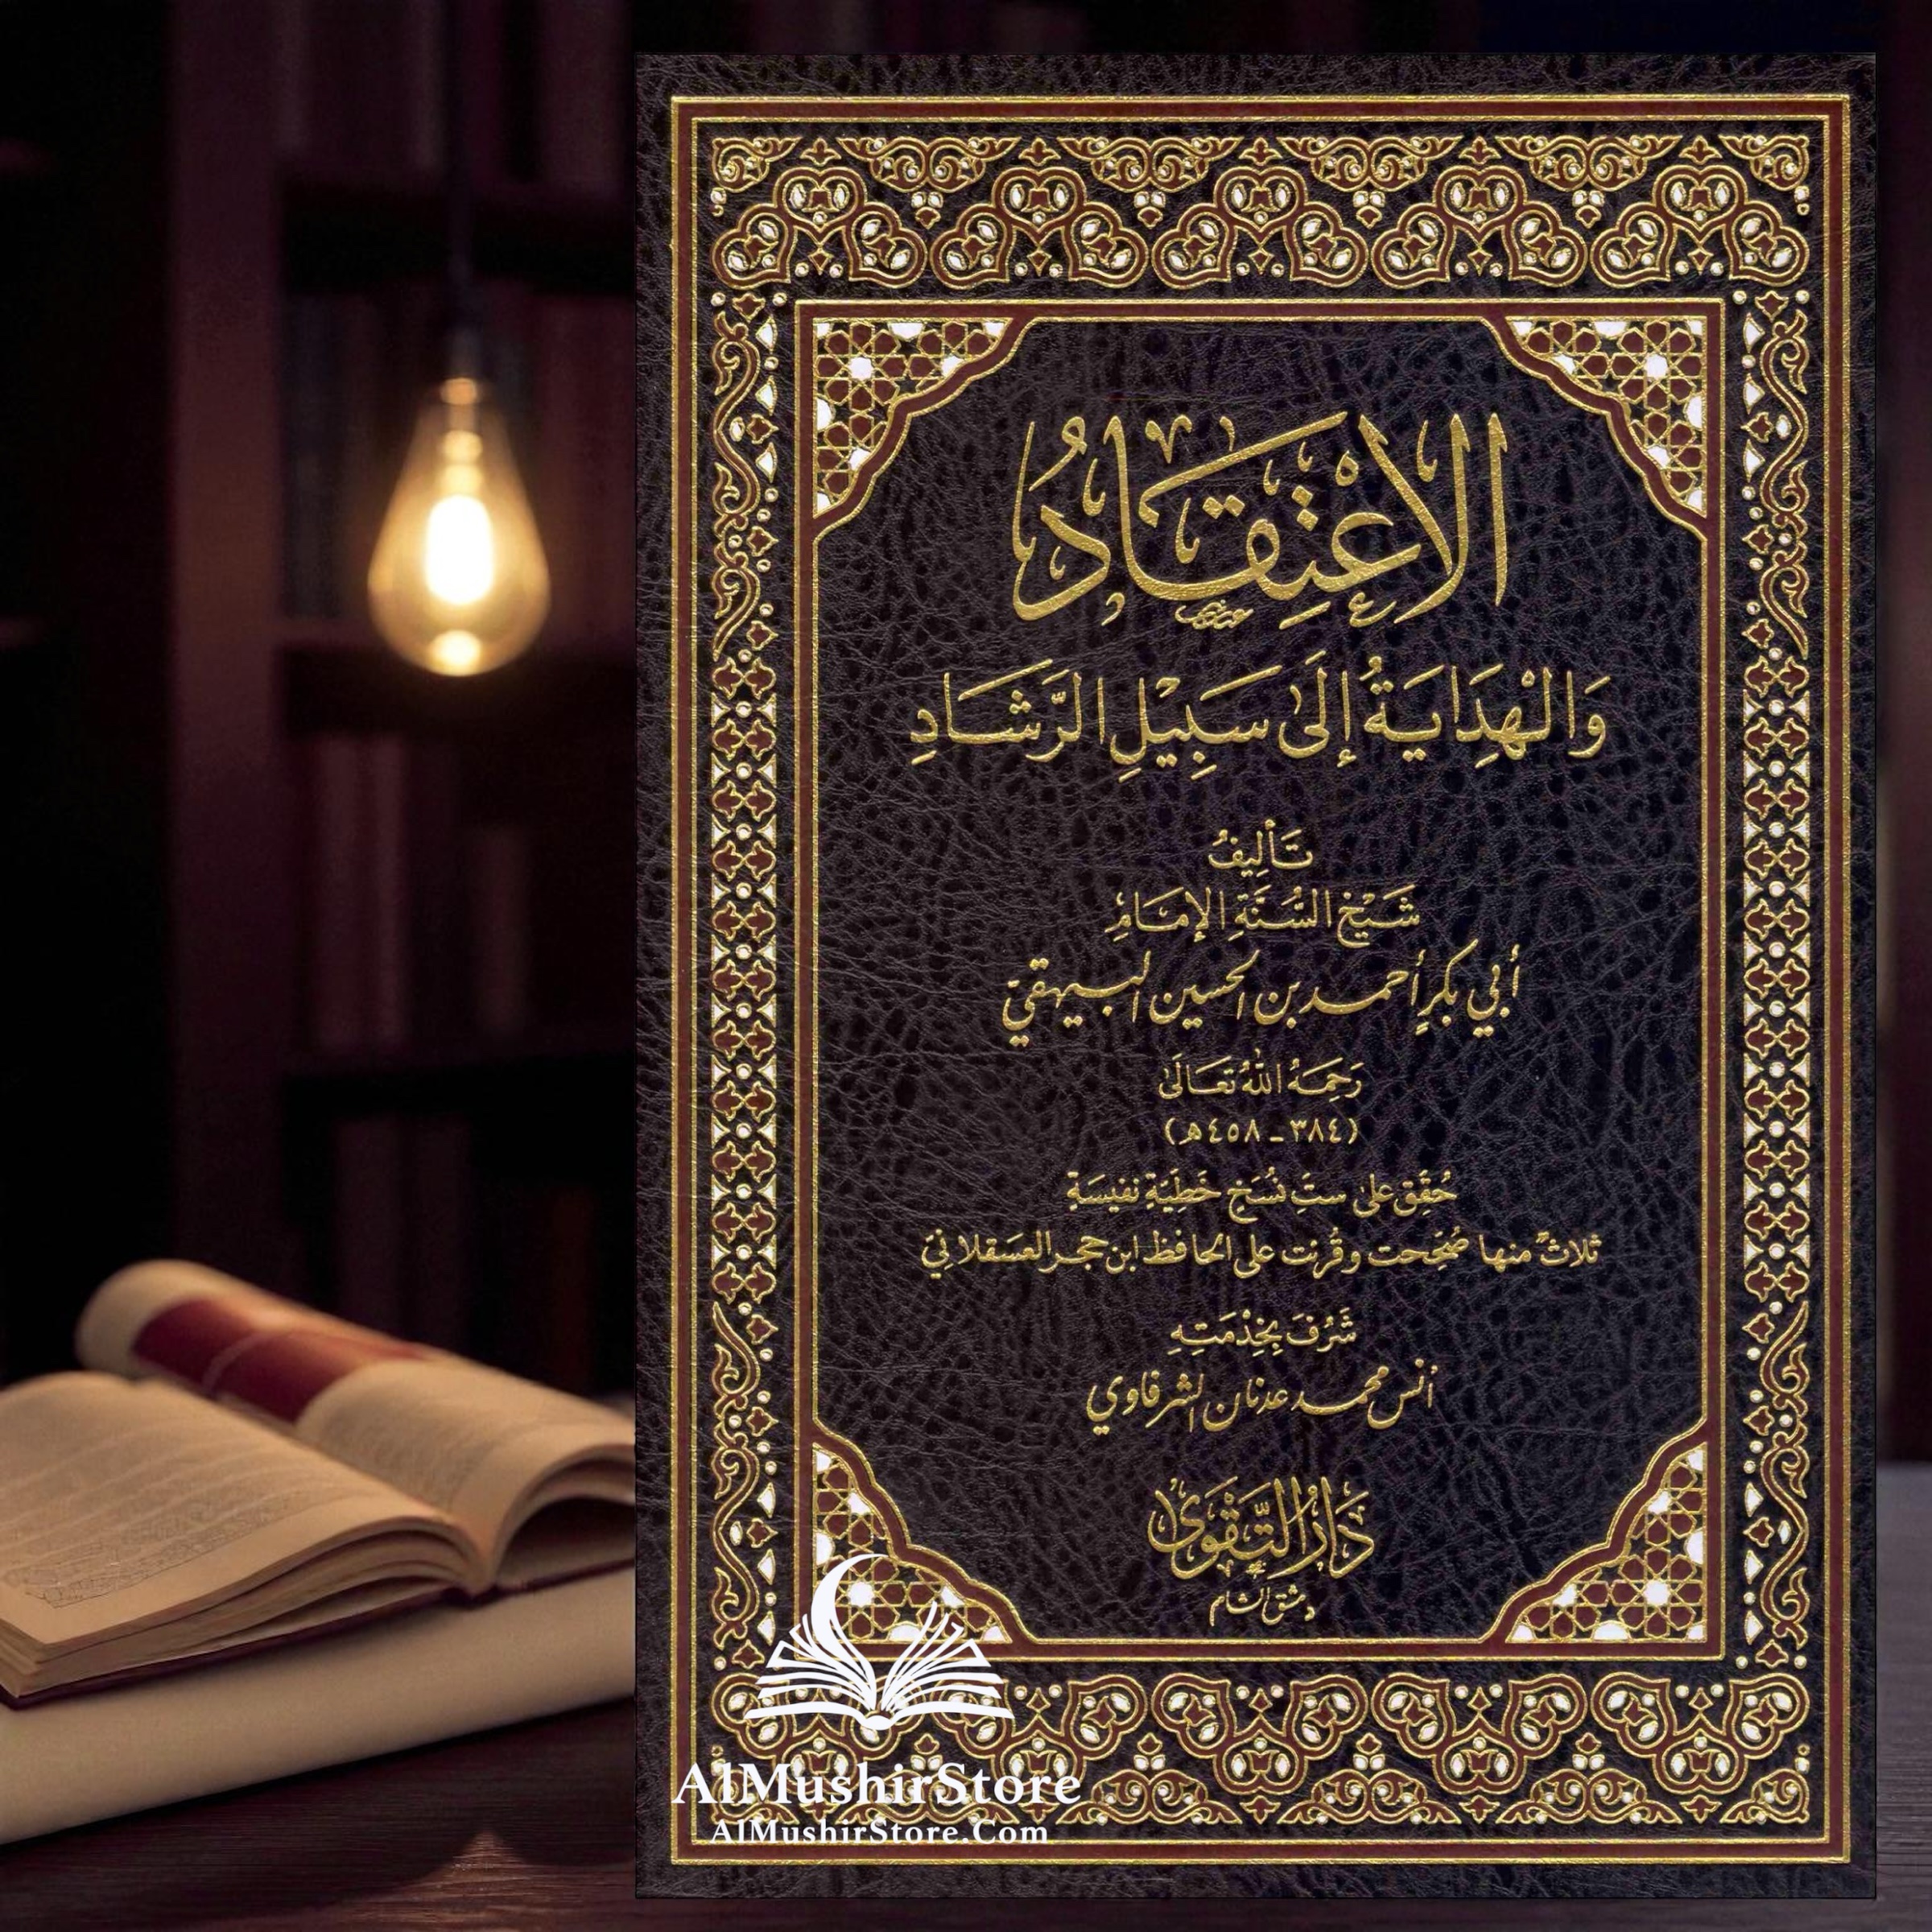 الاعْتِقَادُ
وَالْهِدَايَةُ إِلَى سَبِيْلِ الرَّشَادِ
تَأْلِيفُ
شَيْخِ السُّنَّةِ الإِمَامِ
أبي بكرٍ أحمد بن الحسين البيهقيّ
رَحِمَهُ اللهُ تَعَالَى
(٣٨٤ - ٤٥٨ هـ)
حُقِّقَ على ستِّ نُسَخٍ خَطِّيَّةٍ نفيسَةٍ
ثلاثٌ منها صُحِّحت وقُرئت على الحافظ ابن حجر العسقلانيّ
شَرُفَ بِخِدْمَتِهِ
أنس محمد عدنان الشرفاوي
دَارُ التَّقْوَى
دمشق الشام
AlMushirStore
AlMushirStore.Com